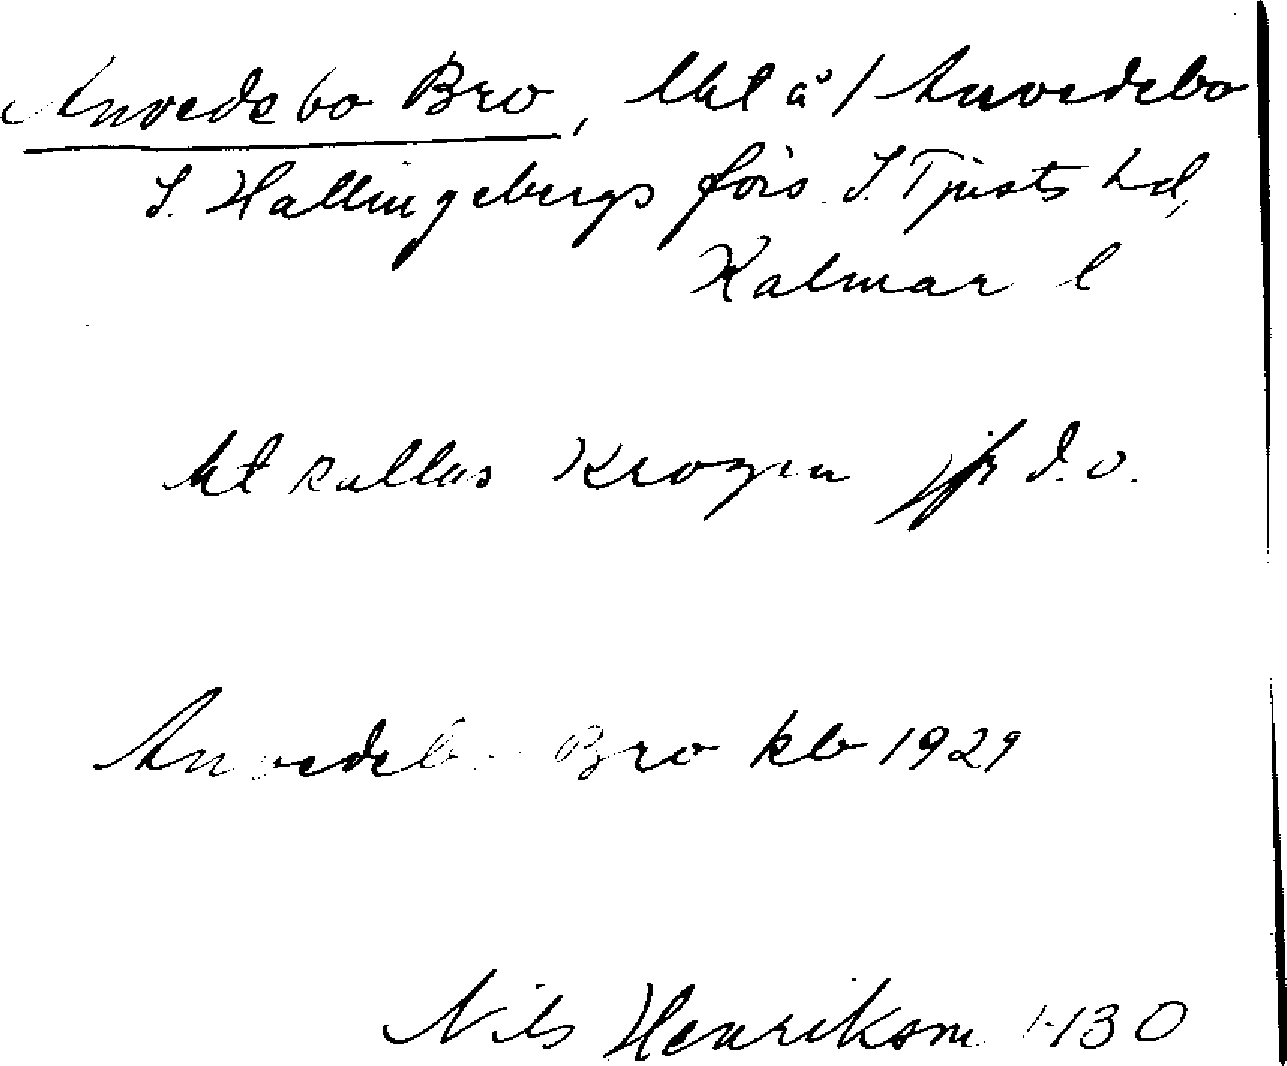 Anvedsbo Bro, lht å / Anvedsbo
S. Hallingebergs förs. S. Tjusts hd,
Kalmar l
ht kallas Krogen jfr d.o.
Anvedsb Bro kb 1929
Nils Henrikson 1930